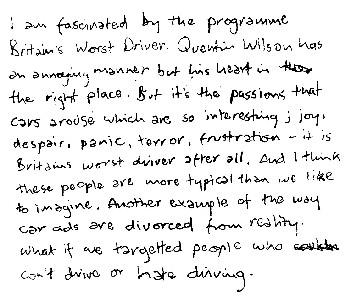 I am fascinated by the programme
Britain's Worst Driver. Quentin Wilson has
an annoying manner but his heart in
the right place. But it's the passions that
cars arouse which are so interesting; joy,
despair, panic, terror, frustration - it is
Britains worst driver after all. And I think
these people are more typical than we like
to imagine. Another example of the way
car ads are divorced from reality.
What if we targetted people who
can't drive or hate driving.